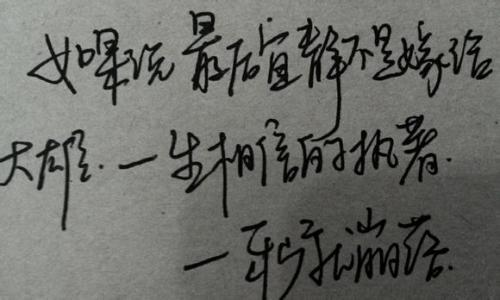 如果说最后宜静不是嫁给
大雄.一生相信的执著.
一秒就崩落.